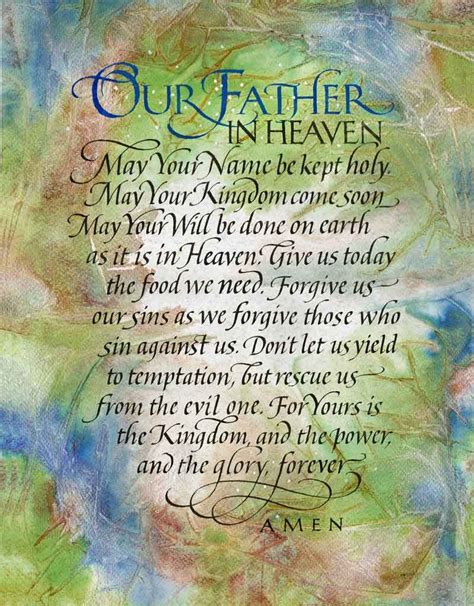 OUR FATHER
IN HEAVEN
May Your Name be kept holy.
May Your Kingdom come soon
May Your Will be done on earth
as it is in Heaven. Give us today
the food we need. Forgive us
our sins as we forgive those who
sin against us. Don't let us yield
to temptation, but rescue us
from the evil one. For Yours is
the Kingdom, and the power,
and the glory, forever
AMEN